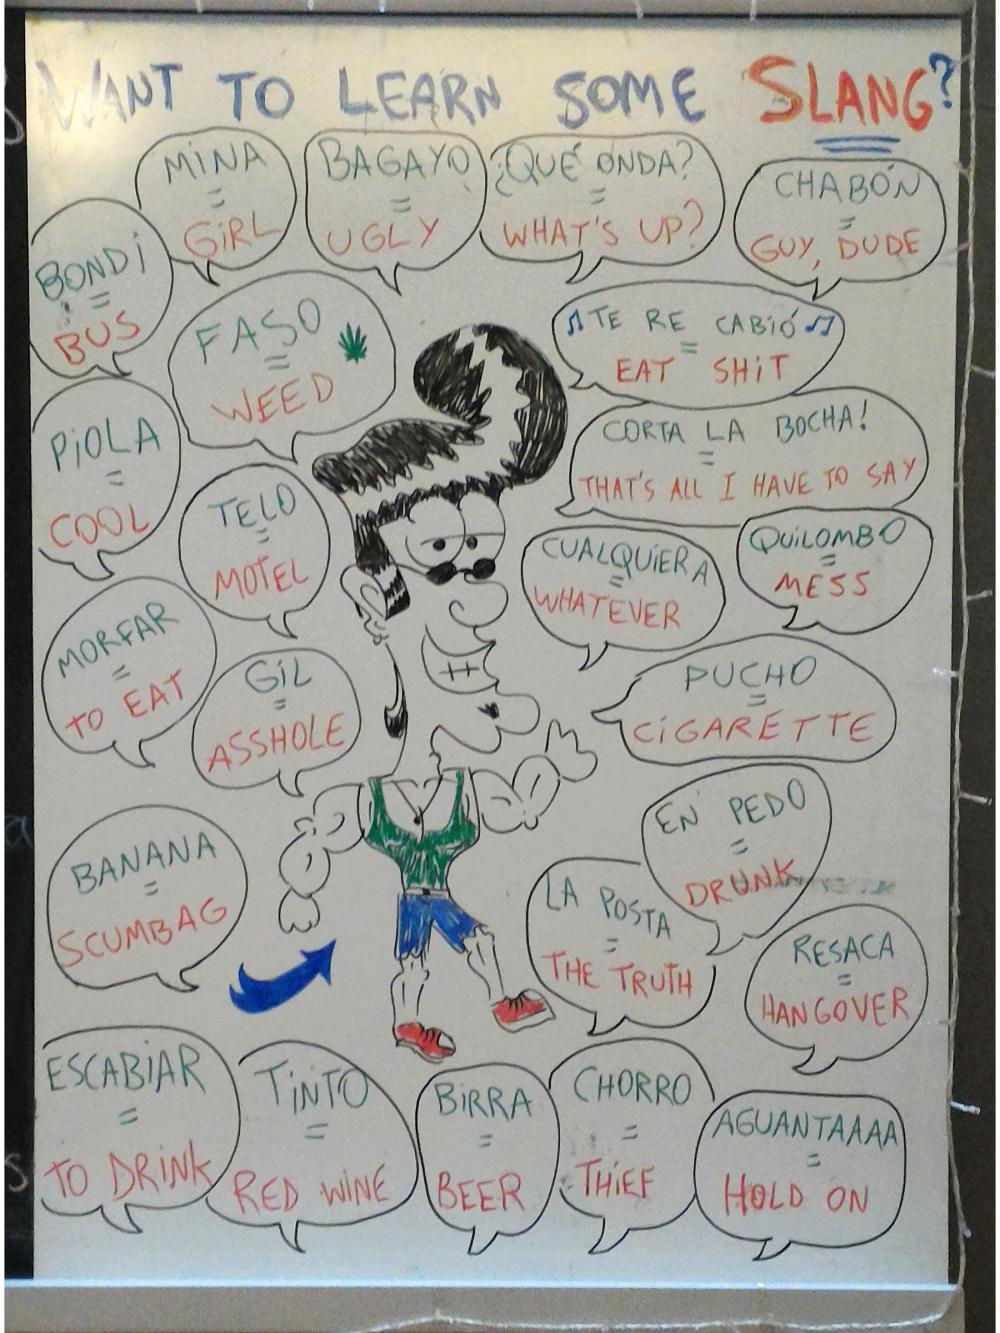 WANT TO LEARN SOME SLANG?
MINA
=
GIRL
BAGAYO
=
UGLY
¿QUÉ ONDA?
=
WHAT'S UP?
CHABÓN
=
GUY, DUDE
BONDI
=
BUS
FASO
=
WEED
♫TE RE CABIÓ♫
=
EAT SHIT
PIOLA
=
COOL
CORTA LA BOCHA!
=
THAT'S ALL I HAVE TO SAY
TELO
=
MOTEL
CUALQUIERA
=
WHATEVER
QUILOMBO
=
MESS
MORFAR
=
TO EAT
GIL
=
ASSHOLE
PUCHO
=
CIGARETTE
EN PEDO
=
DRUNK
BANANA
=
SCUMBAG
LA POSTA
=
THE TRUTH
RESACA
=
HANGOVER
ESCABIAR
=
TO DRINK
TINTO
=
RED WINE
BIRRA
=
BEER
CHORRO
=
THIEF
AGUANTAAAA
=
HOLD ON